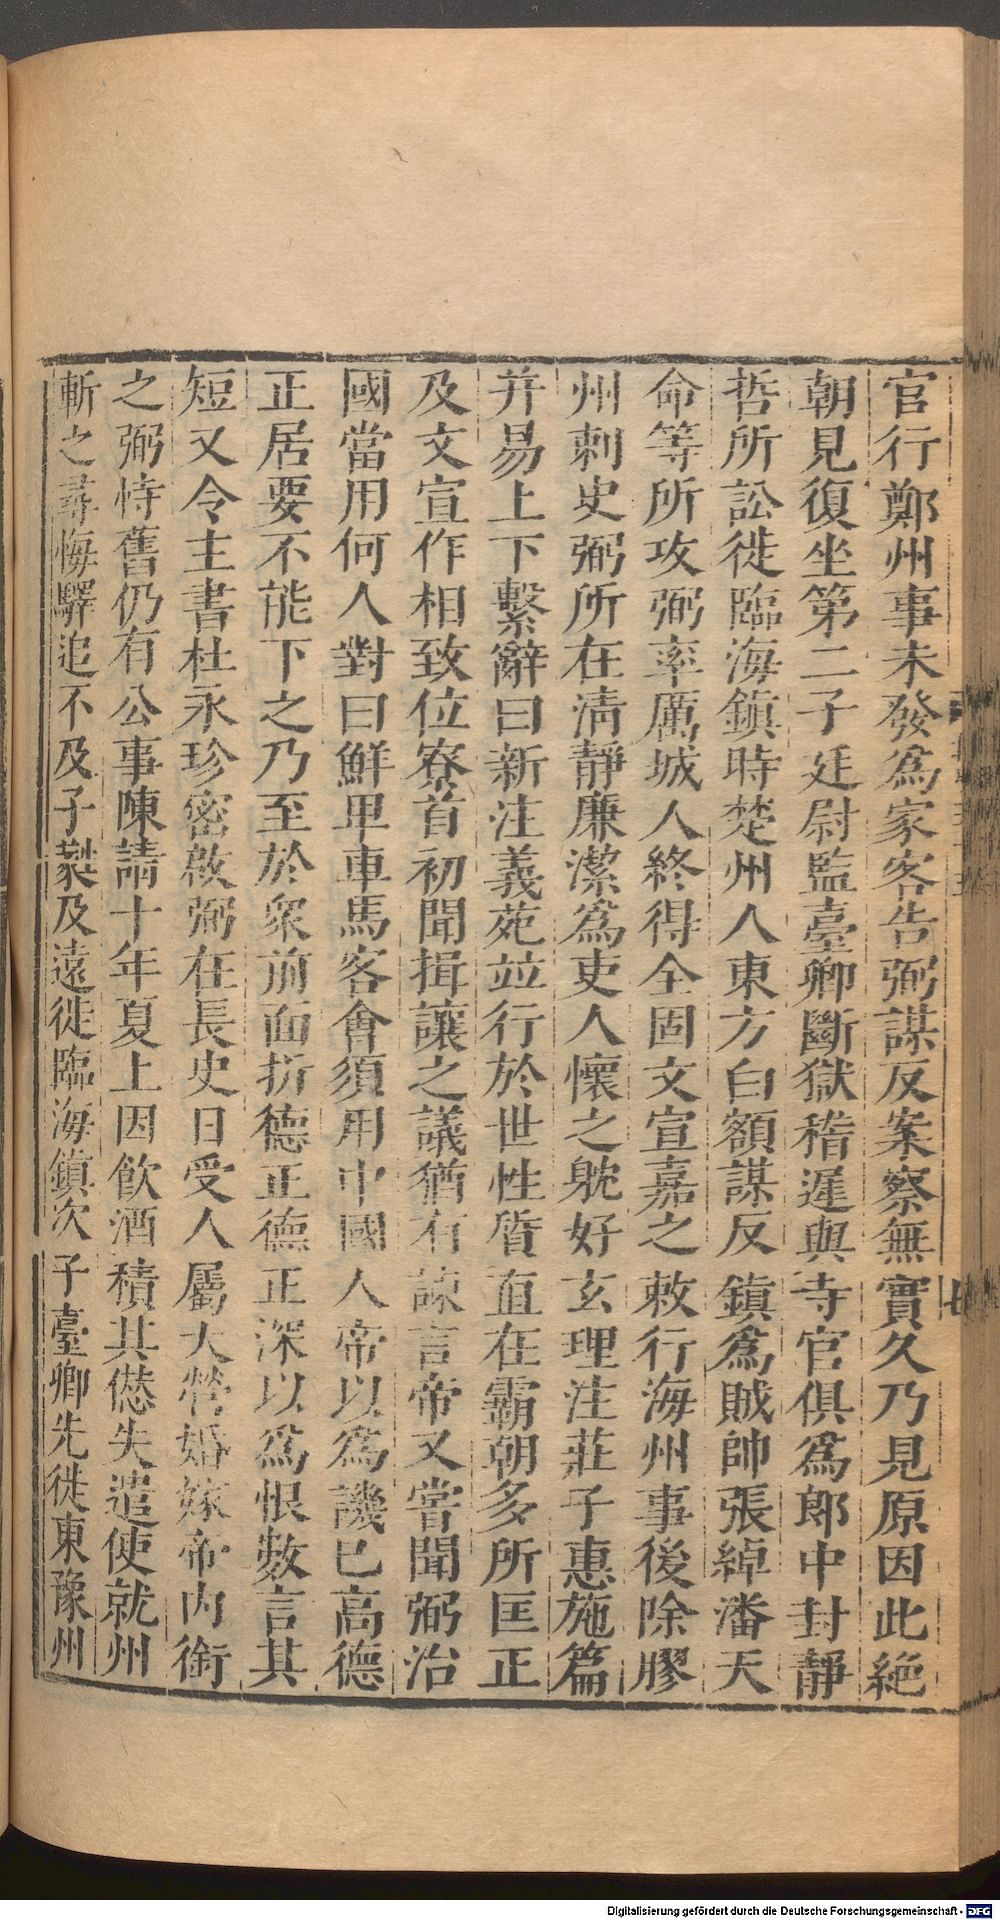 官行鄭州事未發爲家客告弼謀反案察無實久乃見原因此絶
朝見復坐第二子廷尉監臺卿斷獄稽遲與寺官俱爲郎中封靜
哲所訟徙臨海鎮時楚州人東方白額謀反鎮爲賊帥張綽潘天
命等所攻弼率厲城人終得全固文宣嘉之敕行海州事後除膠
州刺史弼所在清靜廉潔爲吏人懷之躭好玄理注莊子惠施篇
并易上下繫辭曰新注義苑竝行於世性質直在霸朝多所匡正
及文宣作相致位寮首初聞揖讓之議猶有諫言帝又嘗聞弼治
國當用何人對曰鮮卑車馬客會須用中國人帝以爲譏已高德
正居要不能下之乃至於衆前面折德正德正深以爲恨數言其
短又令主書杜永珍密啟弼在長史日受人屬大營婚嫁帝內銜
之弼恃舊仍有公事陳請十年夏上因飲酒積其愆失遣使就州
斬之尋悔驛追不及子㔶及遠徙臨海鎮次子臺卿先徙東豫州
七
Digitalisierung gefördert durch die Deutsche Forschungsgemeinschaft - DFG